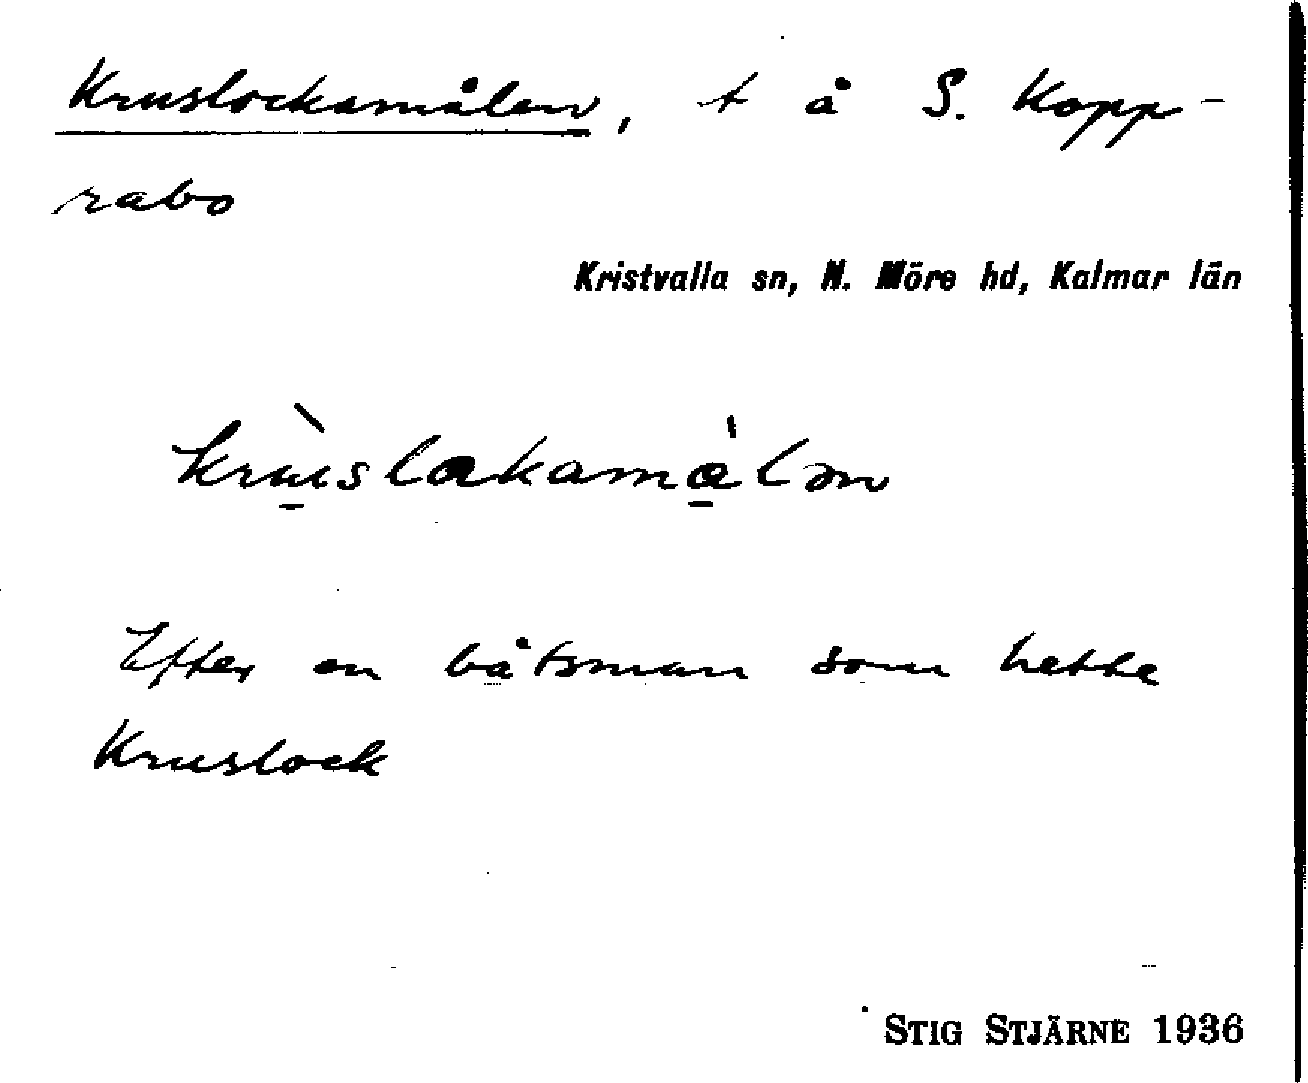 Kruslockamålen, t å S. Kopp-
rabo
Kristvalla sn, N. Möre hd, Kalmar län
krùslakamǻlən
Efter en båtsman som hette
Kruslock
STIG STJÄRNE 1936